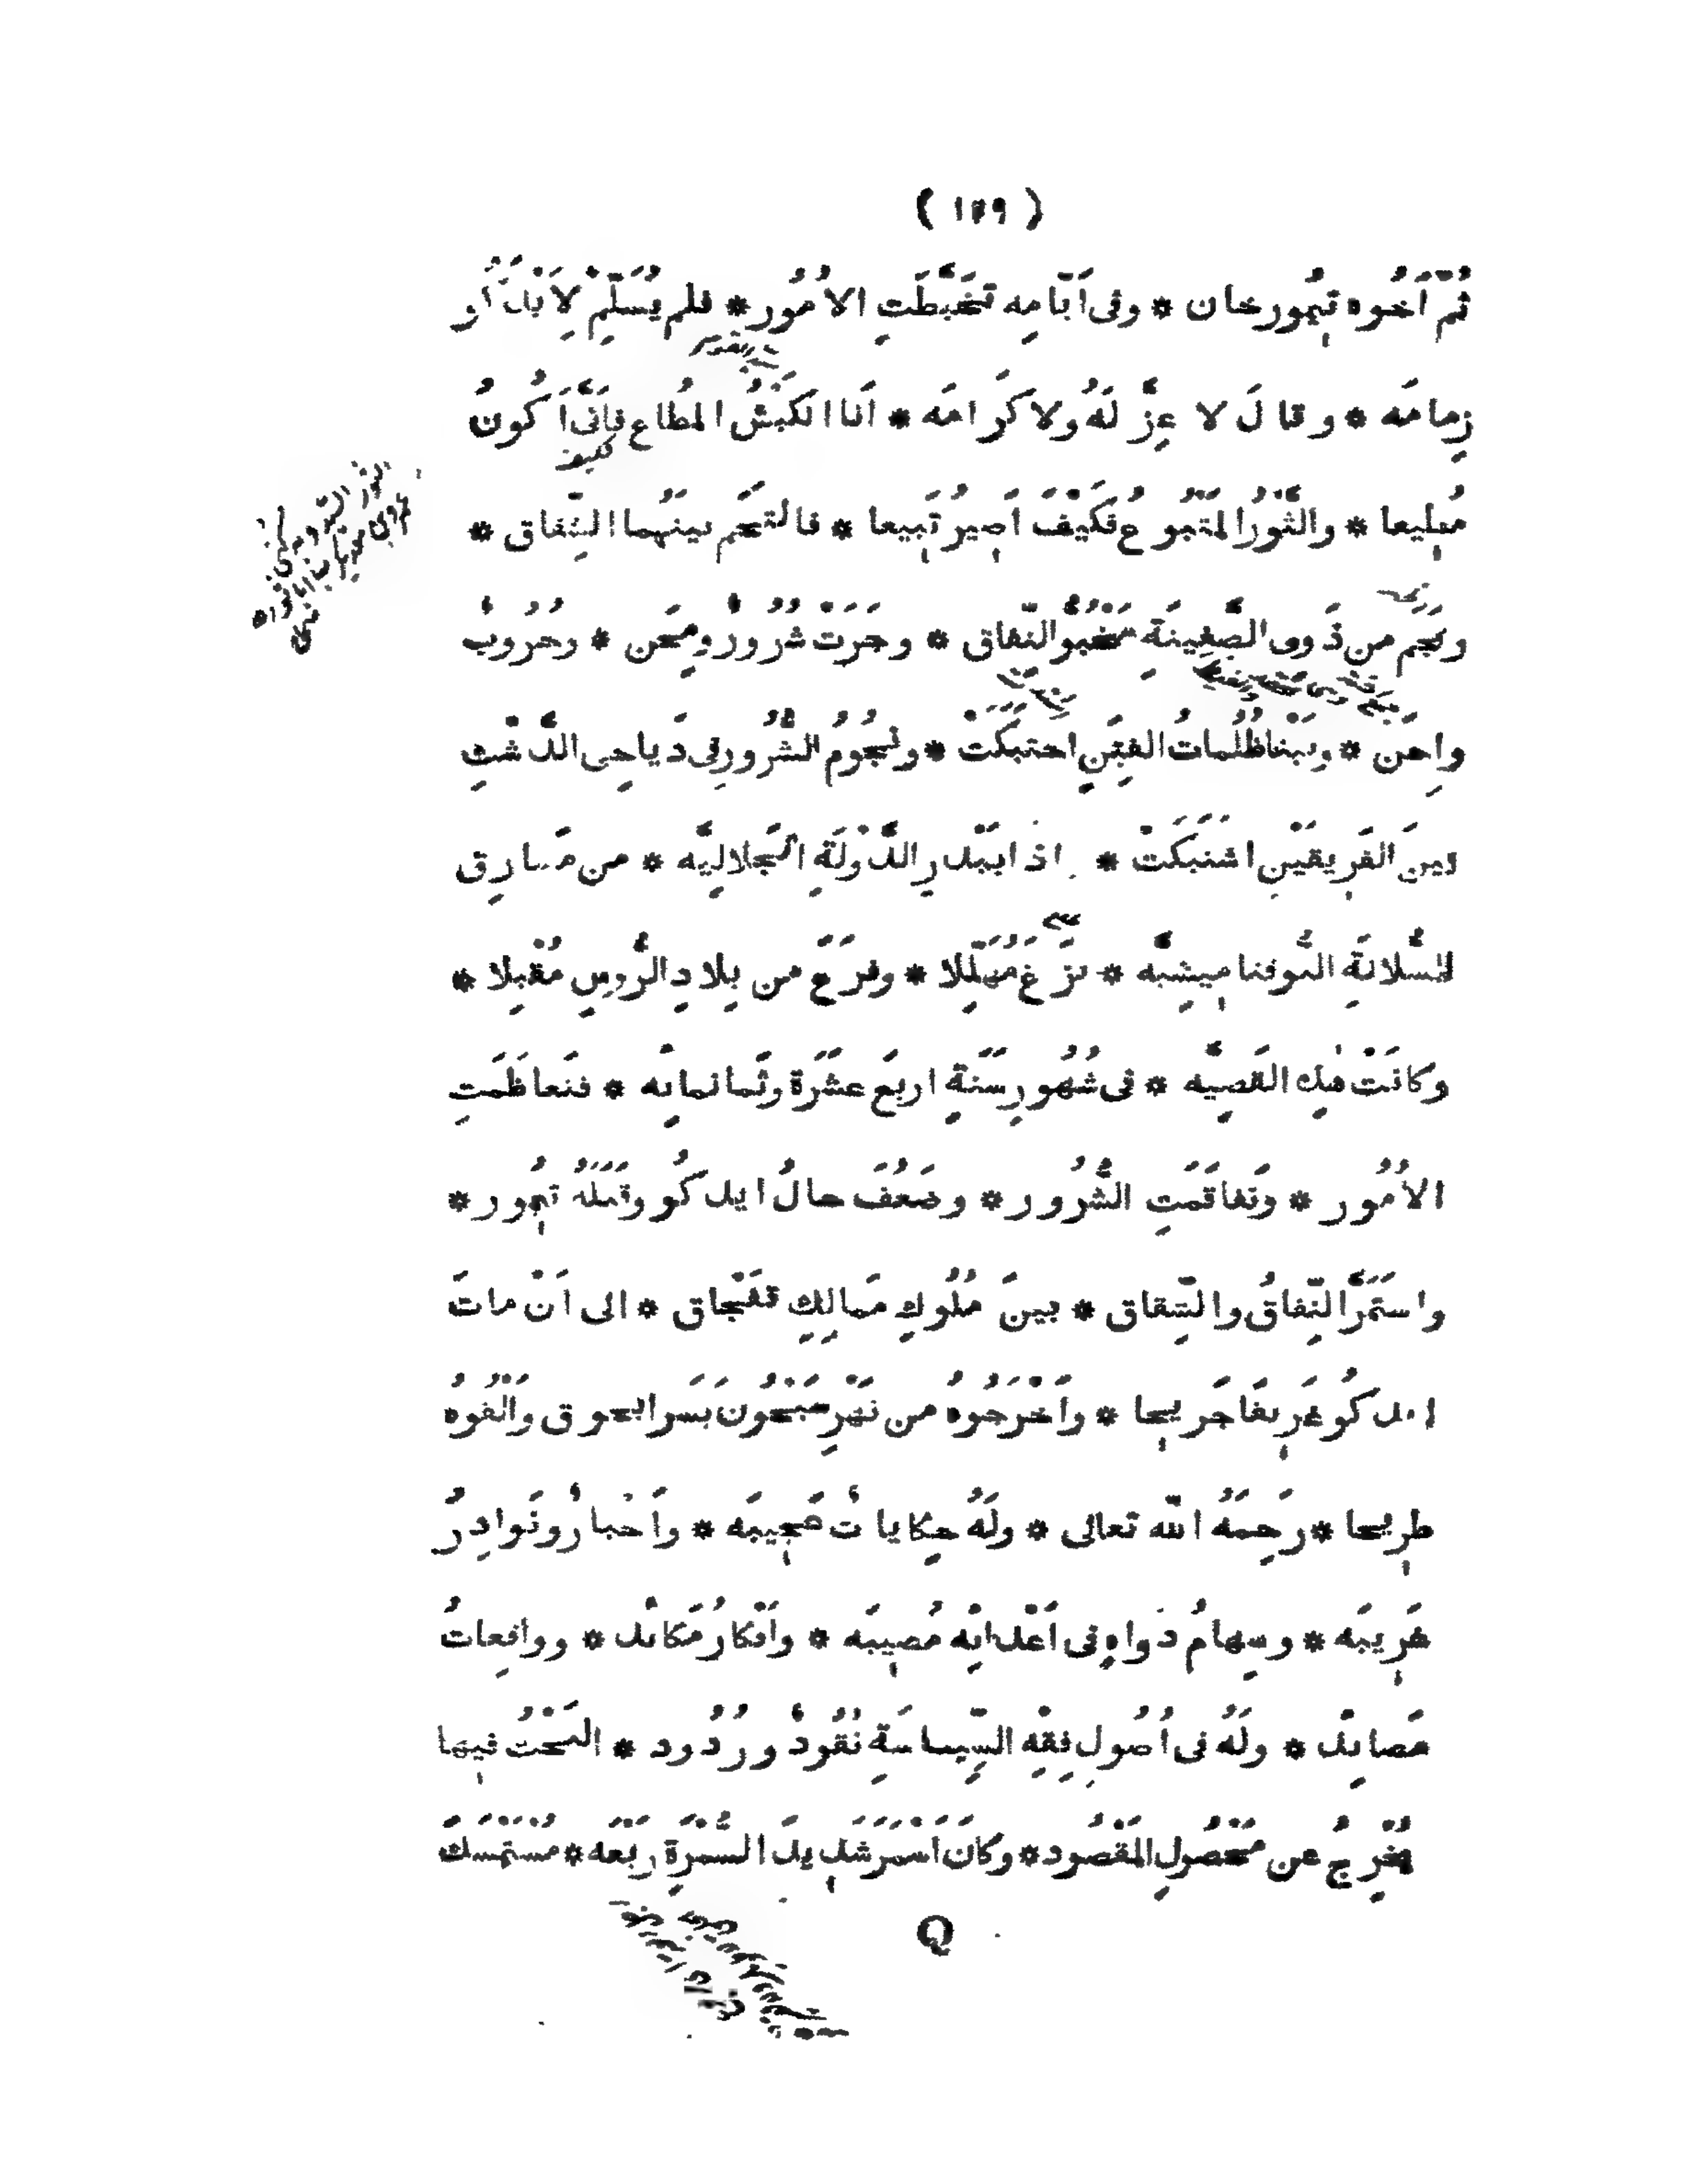 ( ١٢٩ )
ثُمّ أَخُوه تيمُور خان * وفى أَيّامِه تَخَبَّطَتِ الأُمُور * فلم يُسَلِّمْ لِايدكو
زِمامَه * وقالَ لا عِزَّ لَهُ ولا كَرامَه * اَنا الكَبْشُ المُطاع فاَنّى اَكُونُ
مُطِيعا * والثَّوْرُ المَتْبُوعُ فكَيْفَ اَصِيرُ تَبِيعا * فالتَحَم بينَهُما النِّفاق *
ونَجَم من ذَوِى الضَّغِينَةِ مَخْبُوُّ النّفاق * وجَرَتْ شُرُورٌ ومِحَن * وحُرُوبٌ
واِحَن * وبَيْنا ظُلُماتُ الفِتَنِ احتَبَكَتْ * ونُجُومُ الشُّرُورِ فى دَياجِى الدَّشْتِ
بينَ الفَرِيقَيْنِ اشتَبَكَتْ * اذا ببَدْرِ الدَّوْلَةِ الجَلالِيَّه * من مَشارِق
السُّلالَةِ التُّوقتاميشِيَّه * بَزَغَ مُهَلِّلا * وفَرَعَ من بِلادِ الرُّوسِ مُقْبِلا *
وكانَتْ هٰذِه القَضِيَّه * فى شُهُورِ سَنَةِ اربَعَ عشَرَةَ وثَمانمائه * فتَعاظَمَتِ
الاُمُور * وتَفاقَمَتِ الشُّرُور * وضَعُفَ حالُ ايدكُو وقَتَلَهُ تيمُور *
واستَمَرَّ النِّفاقُ والشِّقاق * بينَ مُلُوكِ مَمالِكِ قَفْجاق * الى اَنْ ماتَ
ايدكُو غَرِيقًا جَرِيحا * واَخْرَجُوهُ من نَهْرِ سَيْحُونَ بسَرايجوق واَلْقَوْهُ
طرِيحا * رَحِمَهُ اللّٰه تعالى * ولَهُ حِكاياتٌ عَجِيبَه * واَخْبارٌ ونَوادِرُ
غَرِيبَه * وسِهامُ دَواهٍ فى اَعْدائِه مُصِيبَه * واَفْكارُ مَكائد * وواقِعاتُ
مَصائِد * ولَهُ فى اُصُولِ فِقْهِ السِّياسَةِ نُقُودٌ ورُدُود * البَحْثُ فيها
يُخْرِجُ عن مَحْصُولِ المَقْصُود * وكانَ اَسْمَرَ شَدِيدَ السُّمْرَةِ رَبْعَه * مُسْتَمْسِكَ
Q